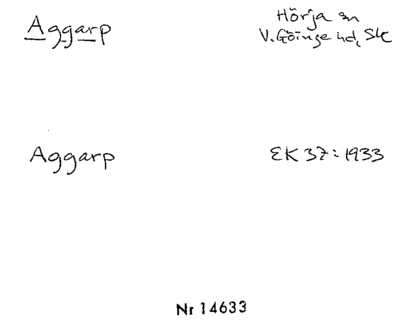 Aggarp
Hörja sn
V. Göinge hd, Sk
Aggarp
EK 37:1933
Nr 14633